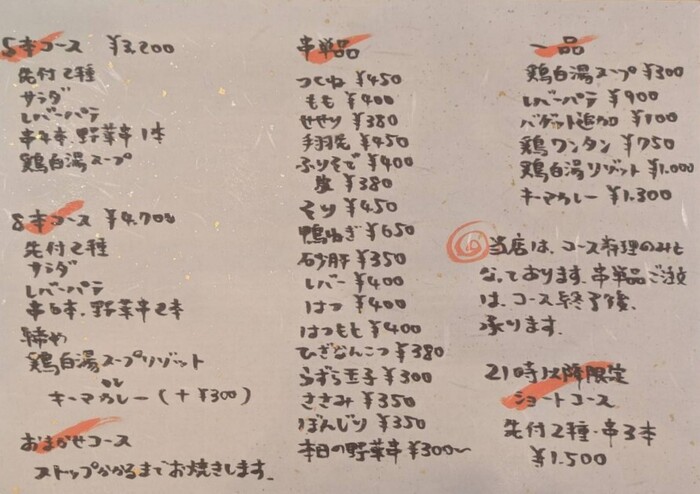 5本コース ¥3,200
先付2種
サラダ
レバーパテ
串4本、野菜串1本
鶏白湯スープ
8本コース ¥4,700
先付2種
サラダ
レバーパテ
串6本、野菜串2本
締め
鶏白湯スープリゾット
or
キーマカレー(+¥300)
おまかせコース
ストップかかるまでお焼きします.
串単品
つくね ¥450
もも ¥400
せせり ¥380
手羽先 ¥450
ふりそで ¥400
皮 ¥380
そり ¥450
鴨ねぎ ¥650
砂肝 ¥350
レバー ¥400
はつ ¥400
はつもと ¥400
ひざなんこつ ¥380
うずら玉子 ¥300
ささみ ¥350
ぼんじり ¥350
本日の野菜串 ¥300〜
一品
鶏白湯スープ ¥300
レバーパテ ¥900
バゲット追加 ¥100
鶏ワンタン ¥750
鶏白湯リゾット ¥1,000
キーマカレー ¥1,300
当店は、コース料理のみと
なっております.串単品ご注
は、コース終了後、
承ります.
21時以降限定
ショートコース
先付2種・串3本
¥1,500